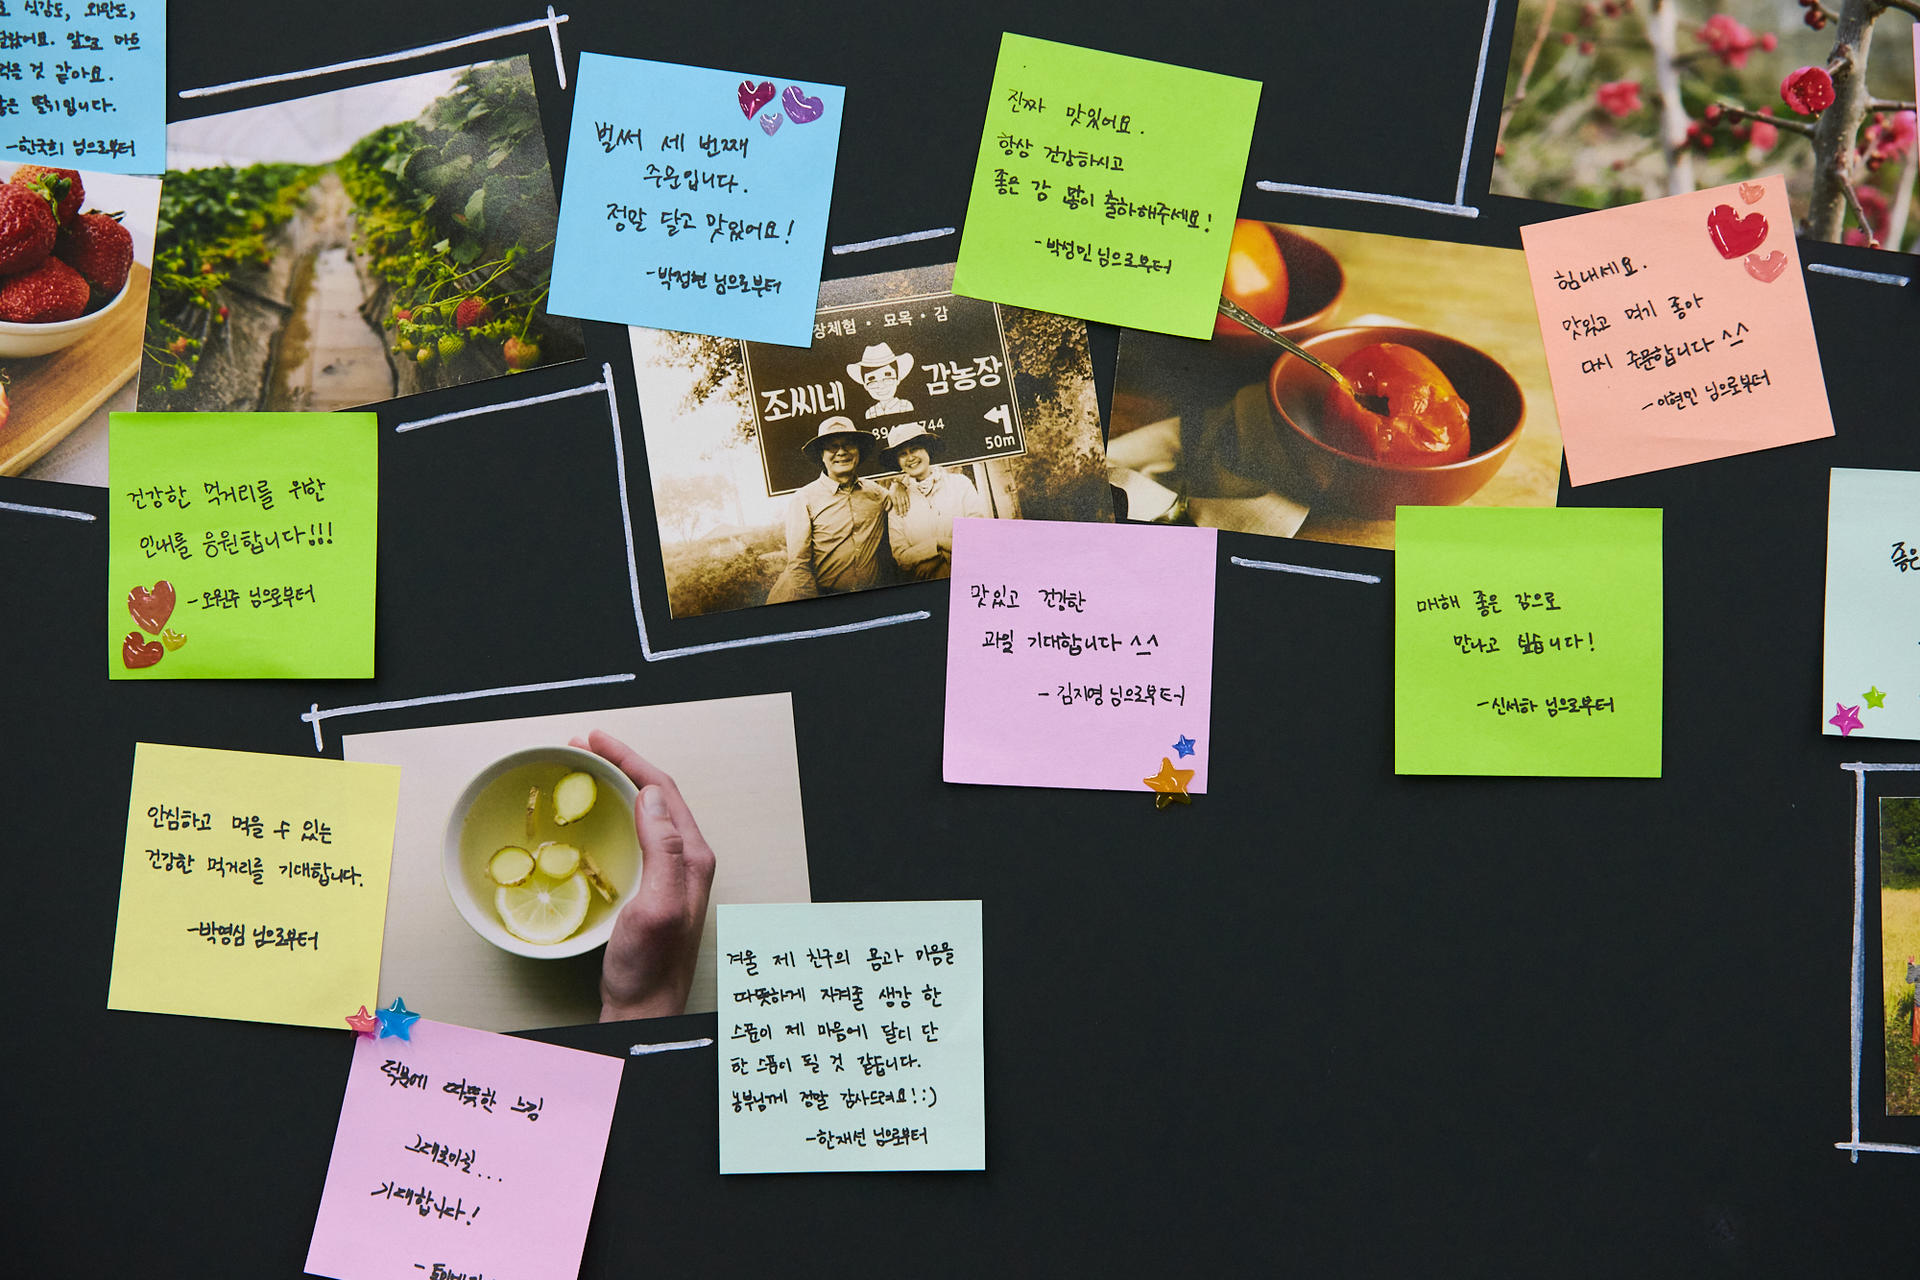 식감도, 와안도,
았어요. 앞으로 마트
먹을 것 같아요.
좋은 딸기입니다.
-한국희 님으로부터
벌써 세 번째
주문입니다.
정말 달고 맛있어요!
-박정현 님으로부터
진짜 맛있어요.
항상 건강하시고
좋은 감 많이 출하해주세요!
-박성민 님으로부터
힘내세요.
맛있고 먹기 좋아
다시 주문합니다 ^^
-이현민 님으로부터
장체험 · 묘목 · 감
조씨네 감농장
744
50m
건강한 먹거리를 위한
인내를 응원합니다!!!
-오원주 님으로부터
맛있고 건강한
과일 기대합니다 ^^
- 김지영 님으로부터
매해 좋은 감으로
만나고 싶습니다!
-신서하 님으로부터
좋은
안심하고 먹을 수 있는
건강한 먹거리를 기대합니다.
-박영심 님으로부터
겨울 제 친구의 몸과 마음을
따뜻하게 지켜줄 생강 한
스푼이 제 마음에 달디 단
한 스푼이 될 것 같습니다.
농부님께 정말 감사드려요!:)
-한재선 님으로부터
덕분에 따뜻한 느낌
그대로이길...
기대합니다!